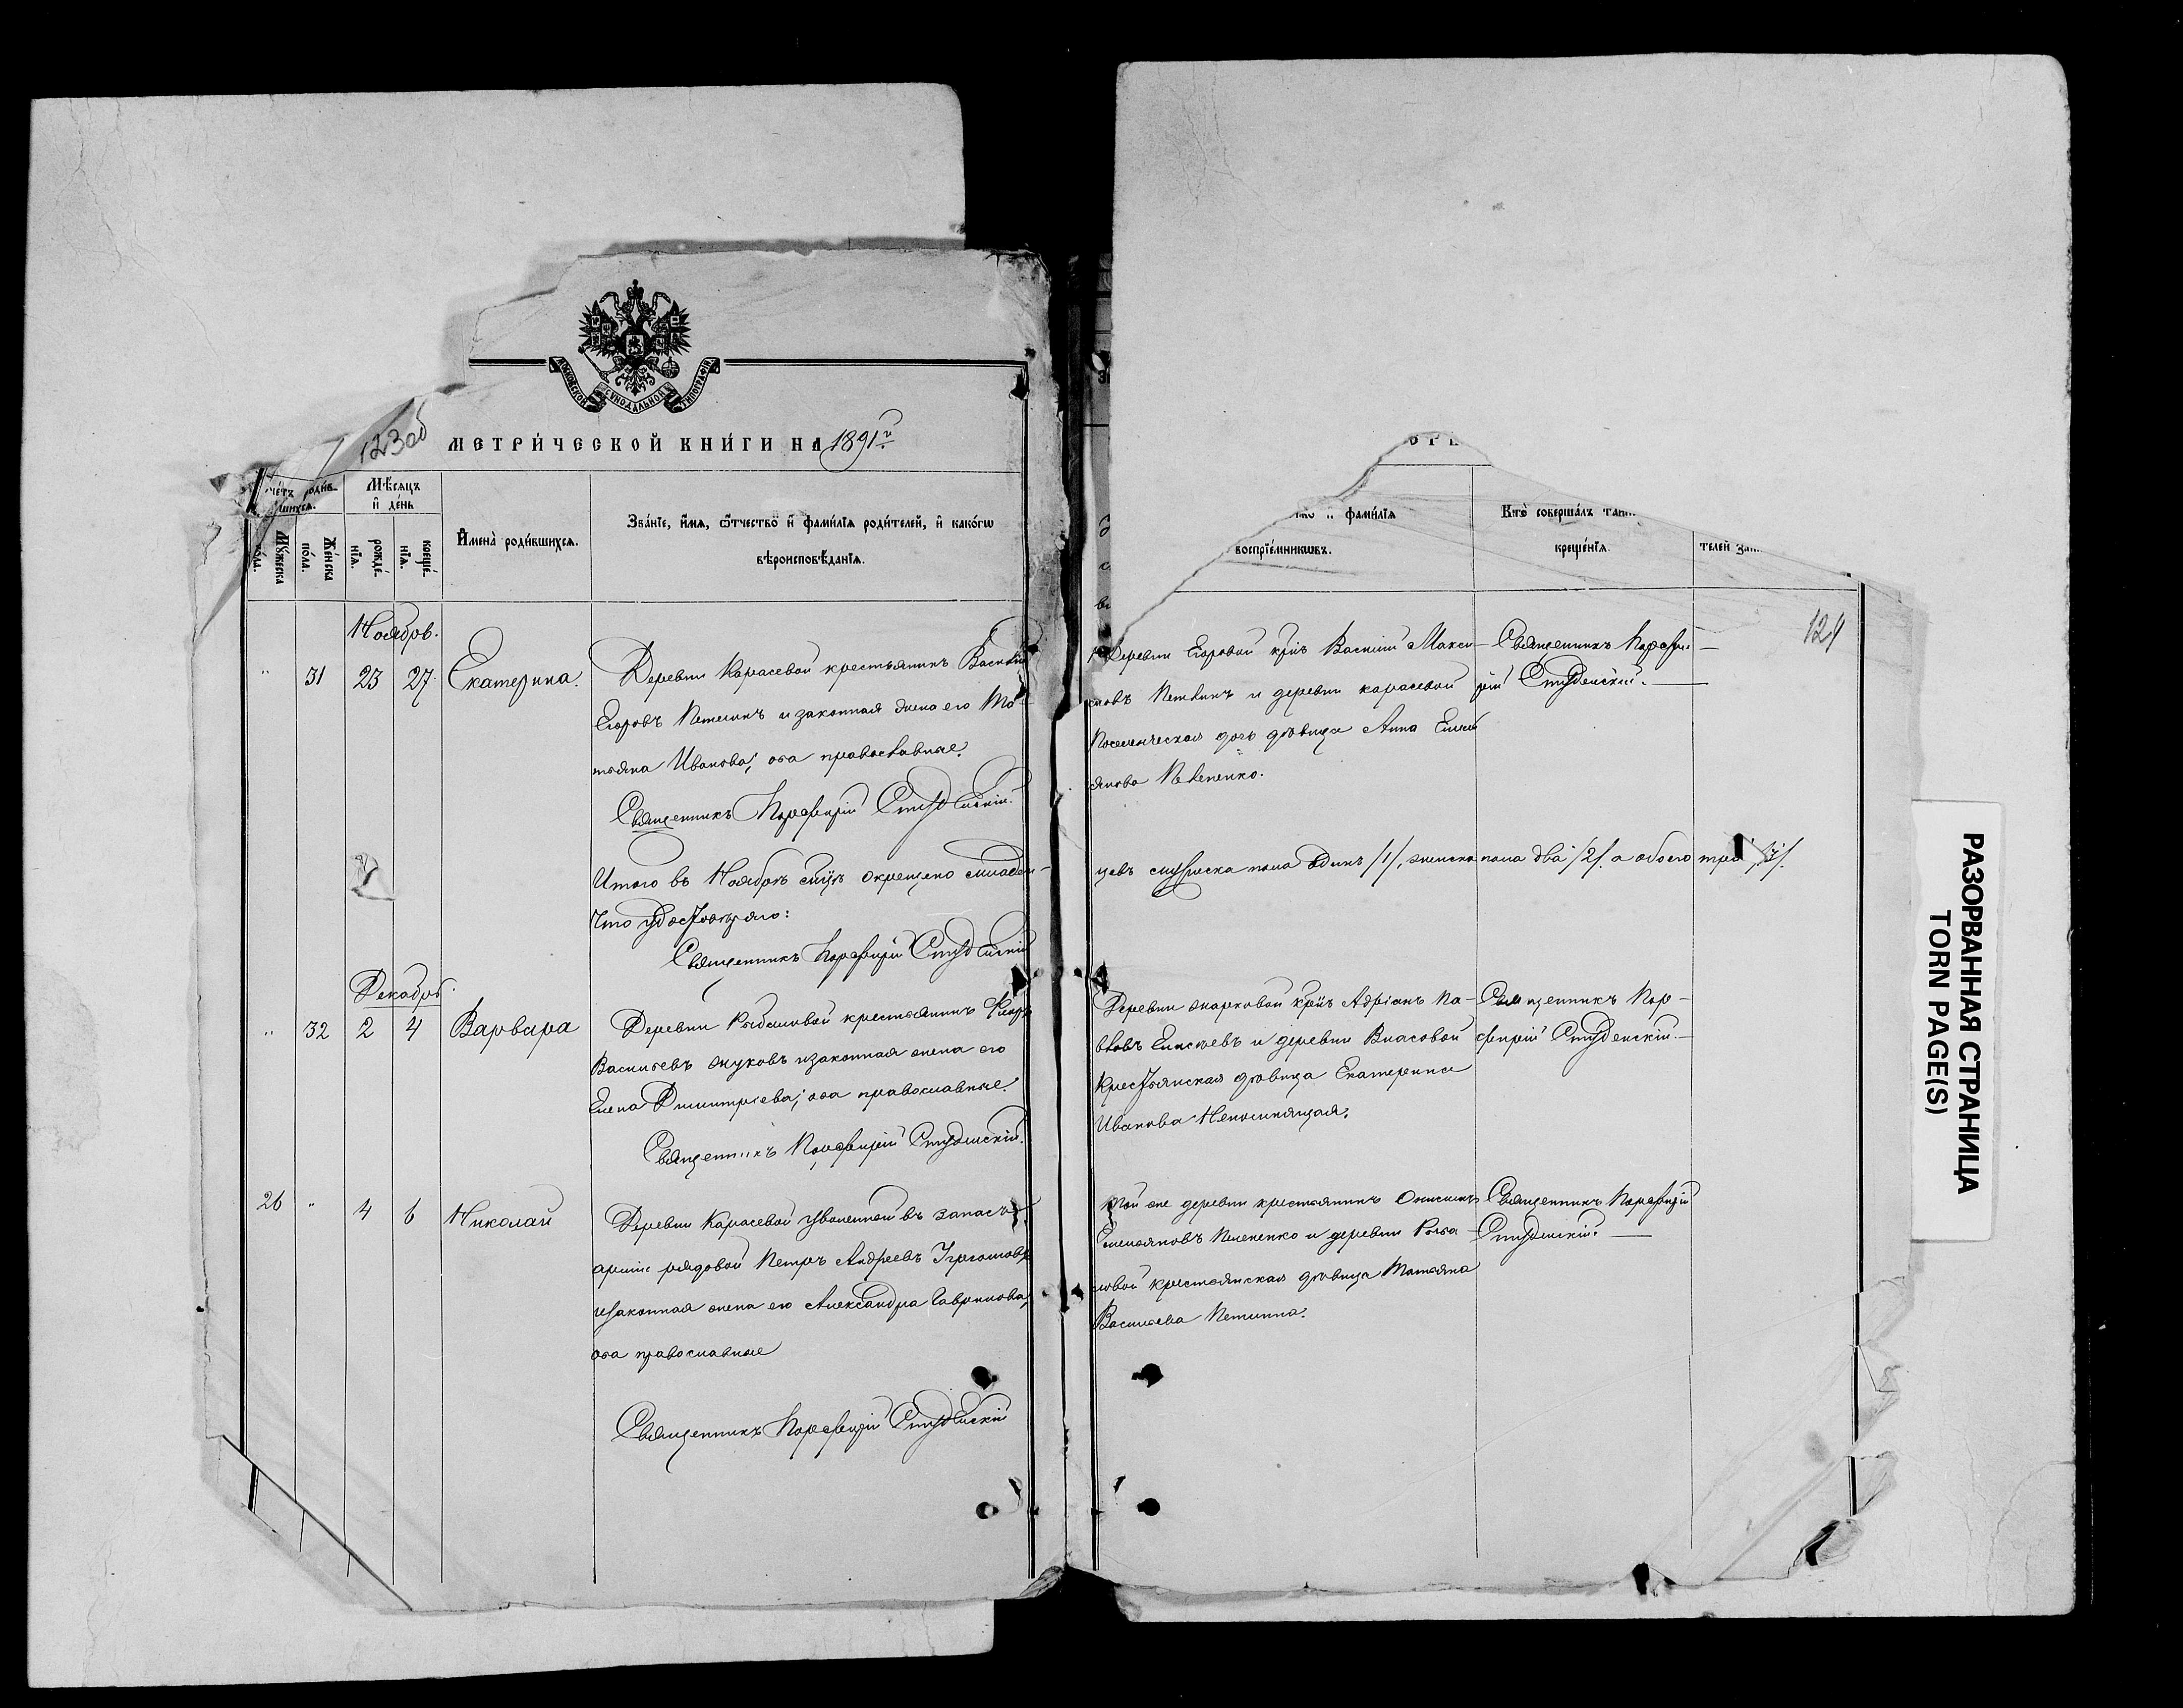 МОСКОВСКОЙ СѴНОДАЛЬНОЙ ТИПОГРАФІИ
123об
МЕТРИ́ЧЕСКОЙ КНИ́ГИ НА 1891 г.
Сче́тъ роди́вшихсѧ.
Мѣ́сѧцъ и҆ де́нь
Мꙋ́жеска по́ла.
Же́нска по́ла.
рожде́нїѧ.
креще́нїѧ.
И҆мена̀ роди́вшихсѧ.
Зва́нїе, и҆́мѧ, ѻ҆́тчество и҆ фами́лїѧ роди́телей, и҆ како́гѡ
вѣроисповѣ́данїѧ.
Ноябрь.
" 31 23 27 Екатерина.
Деревни Карасевой крестьянинъ Василій
Егоровъ Петелинъ и законная жена его Та-
тьяна Иванова; оба православные.
Священникъ Порфирій Студенскій.
Итого въ Ноябрѣ мѣсяцѣ окрещено младен-
Что удостовѣряю:
Священникъ Порфирій Студенскій
Декабрь.
" 32 2 4 Варвара
Деревни Рыбаловой крестьянинъ
Васильевъ Жуковъ и законная жена его
Елена Димитріева; оба православные.
Священникъ Порфирій Студенскій.
26 " 4 6 Николай
Деревни Карасевой уволенной въ запасъ
арміи рядовой Петръ Андреевъ
и законная жена его Александра Гаврилова,
оба православные
Священникъ Порфирій Студенскій
и҆ фами́лїѧ
воспрїе́мникѡвъ.
Кто̀ соверша́лъ
креще́нїѧ.
телей
124
Деревни Егоровой Василій Макси-
мовъ и деревни Карасевой
дочь дѣвица Анна Емель
янова Пелепенко.
Священникъ Порфи-
рій Студенскій.
цевъ мужеска пола одинъ /1/, женска пола два /2/. а обоего три /3/.
Деревни Жарковой Адріанъ Па-
вловъ Елисѣевъ и деревни Власовой
крестьянская дѣвица Екатерина
Иванова Непомнящая.
Священникъ Пор-
фирій Студенскій.
Той же деревни крестьянинъ Онисимъ
Емельяновъ Пелепенко и деревни Рыба
ловой крестьянская дѣвица Татьяна
Васильева
Священникъ Порфирій
Студенскій.
РАЗОРВАННАЯ СТРАНИЦА
TORN PAGE(S)